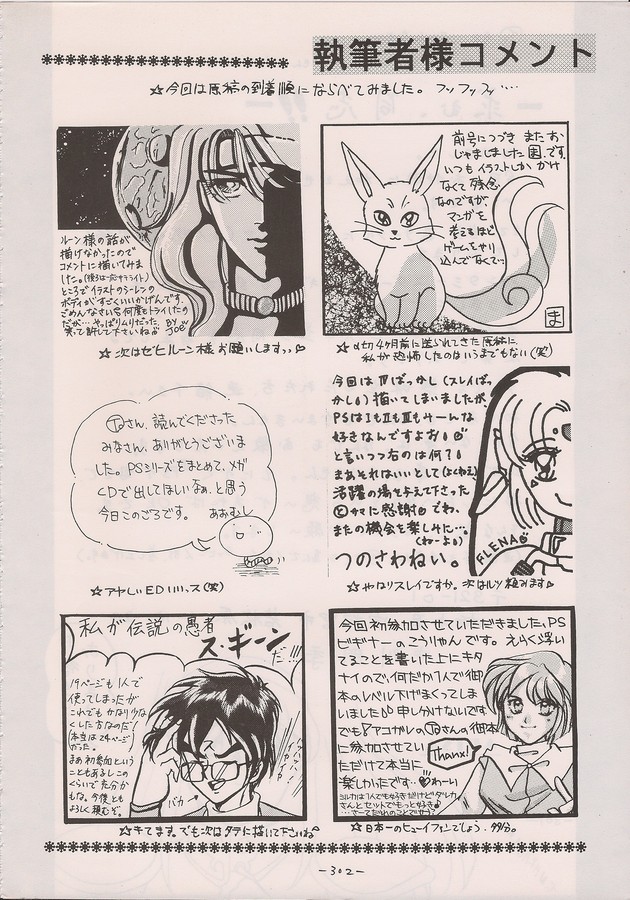 執筆者様コメント
☆今回は原稿の到着順にならべてみました。フッフッフッ…
ルーン様の話が
描けなかったので
コメントに描いてみま
した。(後ろは一応サテライト)
ところでイラストのシーレンの
ボディがすごくいいかげんです。
ごめんなさい。何度もトライしたの
だが…やっぱりムリだった。BY
笑って許して下さいねJOE
☆次はゼヒルーン様お願いしますっ♡
前号につづき またお
じゃましました 困.です。
いつも イラストしか かけ
なくて 残念
なのですが、
マンガを
考えるほど
ゲームをやり
込んでなくてっ
ま
☆〆切4ヶ月前に送られてきた原稿に、
私が恐怖したのはいうまでもない(笑)
さん、読んでくださった
みなさん、ありがとうございま
した。PSシリーズをまとめて、メガ
CDで出してほしいなぁ。と思う
今日このごろです。 あおむし
☆アヤしいED いいっス(笑)
今回はⅣばっかし(スレイばっ
かし。)描いてしまいましたが、
PSはⅠもⅡもⅢもみーんな
好きなんですよお!
と言いつつ右のは何?!
まぁそれはいいとして(よくねえ)
活躍の場を与えて下さった
サマに感謝 ざわ、
またの機会を楽しみに…。
(わーよ)
つのさわねい。
FLENA
☆やはりスレイですか。次はルツ頼みます
私が伝説の愚者
ス・ギーン
だ!!!
19ページも1人で
使ってしまったが
これでもかなり少な
くした方なのだ!
(本当は24ページ
だった。
まぁ初参加という
こともあるしこの
くらいで充分か
もな。今後とも
よろしく頼むぞ。
バカ
ハッハッハッ
☆キてます。でも次はタテに描いて下さいね
今回初参加させていただきました、PS
ビギナーのこうりゃんです。えらく浮い
てることを書いた上にキタ
ナイので、何だか1人で御
本のレベル下げまくってしま
いました 申し分けないです
でもアコガレの さんの御本
に参加させてい
ただけて本当に
楽しかったです…♡わーい
Thanx!
シルカは1人でも好きだけどダレカ
さんとセットでもっと好き
…さーてだれのことでせう?
☆日本一のヒューイファンでしょう、多分。
-302-